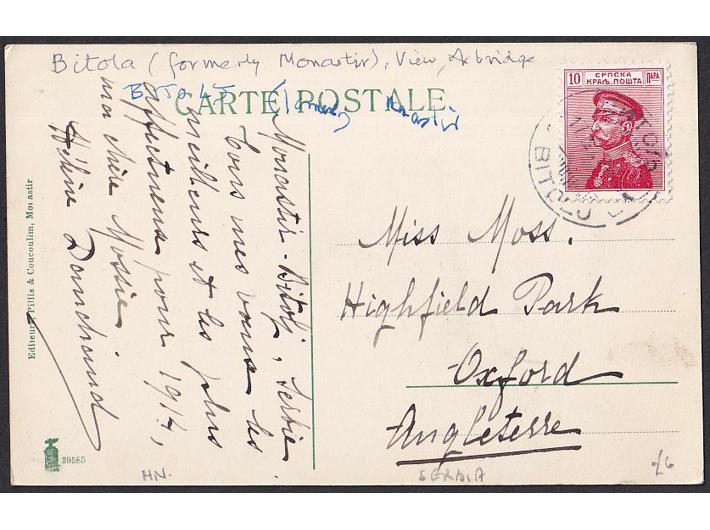 Bitola (formerly Monastir), View, A bridge
CARTE POSTALE.
Monastir-Bitolj, Serbie
Tous mes vœux les
meilleurs et les plus
affectueux pour 1914,
ma chère Mossie
Hélène
10 СРПСКА ПАРА
КРАЉ. ПОШТА
BITOLJ
Miss Moss.
Highfield Park
Oxford
Angleterre
Editeurs Pillis & Coucoulim, Monastir
39585
HN.
SERBIA
-/6